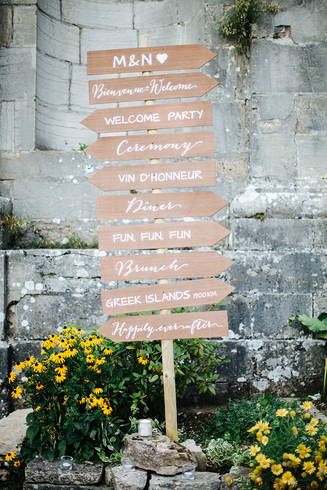 M&N ♥
Bienvenue-Welcome
WELCOME PARTY
Ceremony
VIN D'HONNEUR
Dîner
FUN, FUN, FUN
Brunch
GREEK ISLANDS 1900 KM
Happily ever after